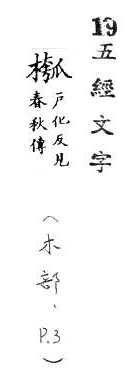 19五經文字
槬
戶化反見
春秋傳
（木部、P.3）